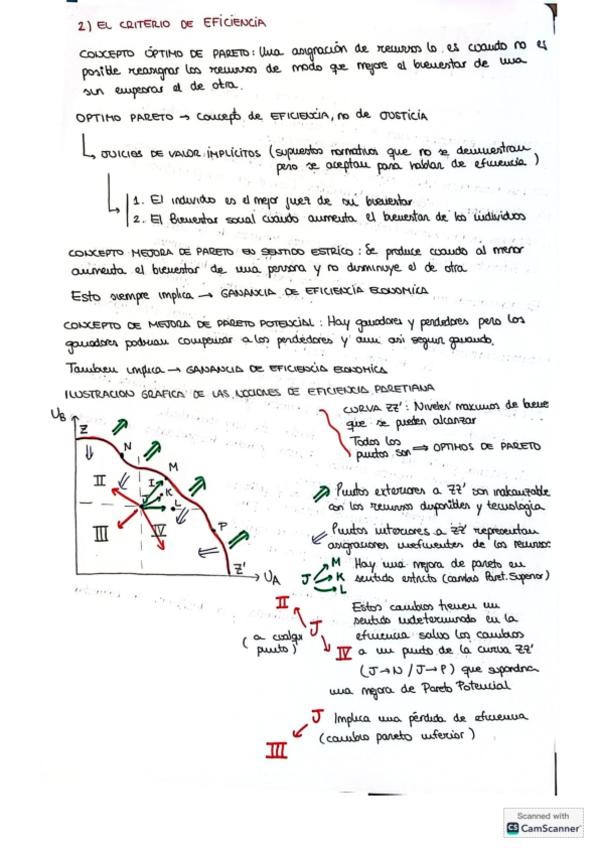 2) EL CRITERIO DE EFICIENCIA
CONCEPTO ÓPTIMO DE PARETO: Una asignación de recursos lo es cuando no es
posible reasignar los recursos de modo que mejore el bienestar de una
sin empeorar el de otra.
OPTIMO PARETO → Concepto de EFICIENCIA, no de JUSTICIA
JUICIOS DE VALOR IMPLÍCITOS (supuestos normativos que no se demuestran
pero se aceptan para hablar de eficiencia)
1. El individuo es el mejor juez de su bienestar
2. El Bienestar social cuando aumenta el bienestar de los individuos
CONCEPTO MEJORA DE PARETO EN SENTIDO ESTRICO: Se produce cuando al menor
aumenta el bienestar de una persona y no disminuye el de otra
Esto siempre implica → GANANCIA DE EFICIENCIA ECONOMICA
CONCEPTO DE MEJORA DE PARETO POTENCIAL: Hay ganadores y perdedores pero los
ganadores podrían compensar a los perdedores y aun así seguir ganando.
Tambien implica → GANANCIA DE EFICIENCIA ECONOMICA
ILUSTRACION GRAFICA DE LAS NOCIONES DE EFICIENCIA PARETIANA
UB
Z
N
M
I
K
J
L
II
III
IV
P
Z'
UA
CURVA ZZ': Niveles maximos de biene
que se pueden alcanzar
Todos los
puntos son ⟹ OPTIMOS DE PARETO
Puntos exteriores a ZZ' son inalcanzable
con los recursos disponibles y tecnologia
Puntos interiores a ZZ' representan
asignaciones ineficientes de los recursos
J → M K L
Hay una mejora de pareto en
sentido estricto (cambio Paret. Superior)
II
J
IV
(a cualqu
punto)
Estos cambios tienen un
sentido indeterminado en la
eficiencia salvo los cambios
a un punto de la curva ZZ'
(J→N / J→P) que supondria
una mejora de Pareto Potencial
J Implica una pérdida de eficiencia
(cambio pareto inferior)
III
Scanned with
CS CamScanner